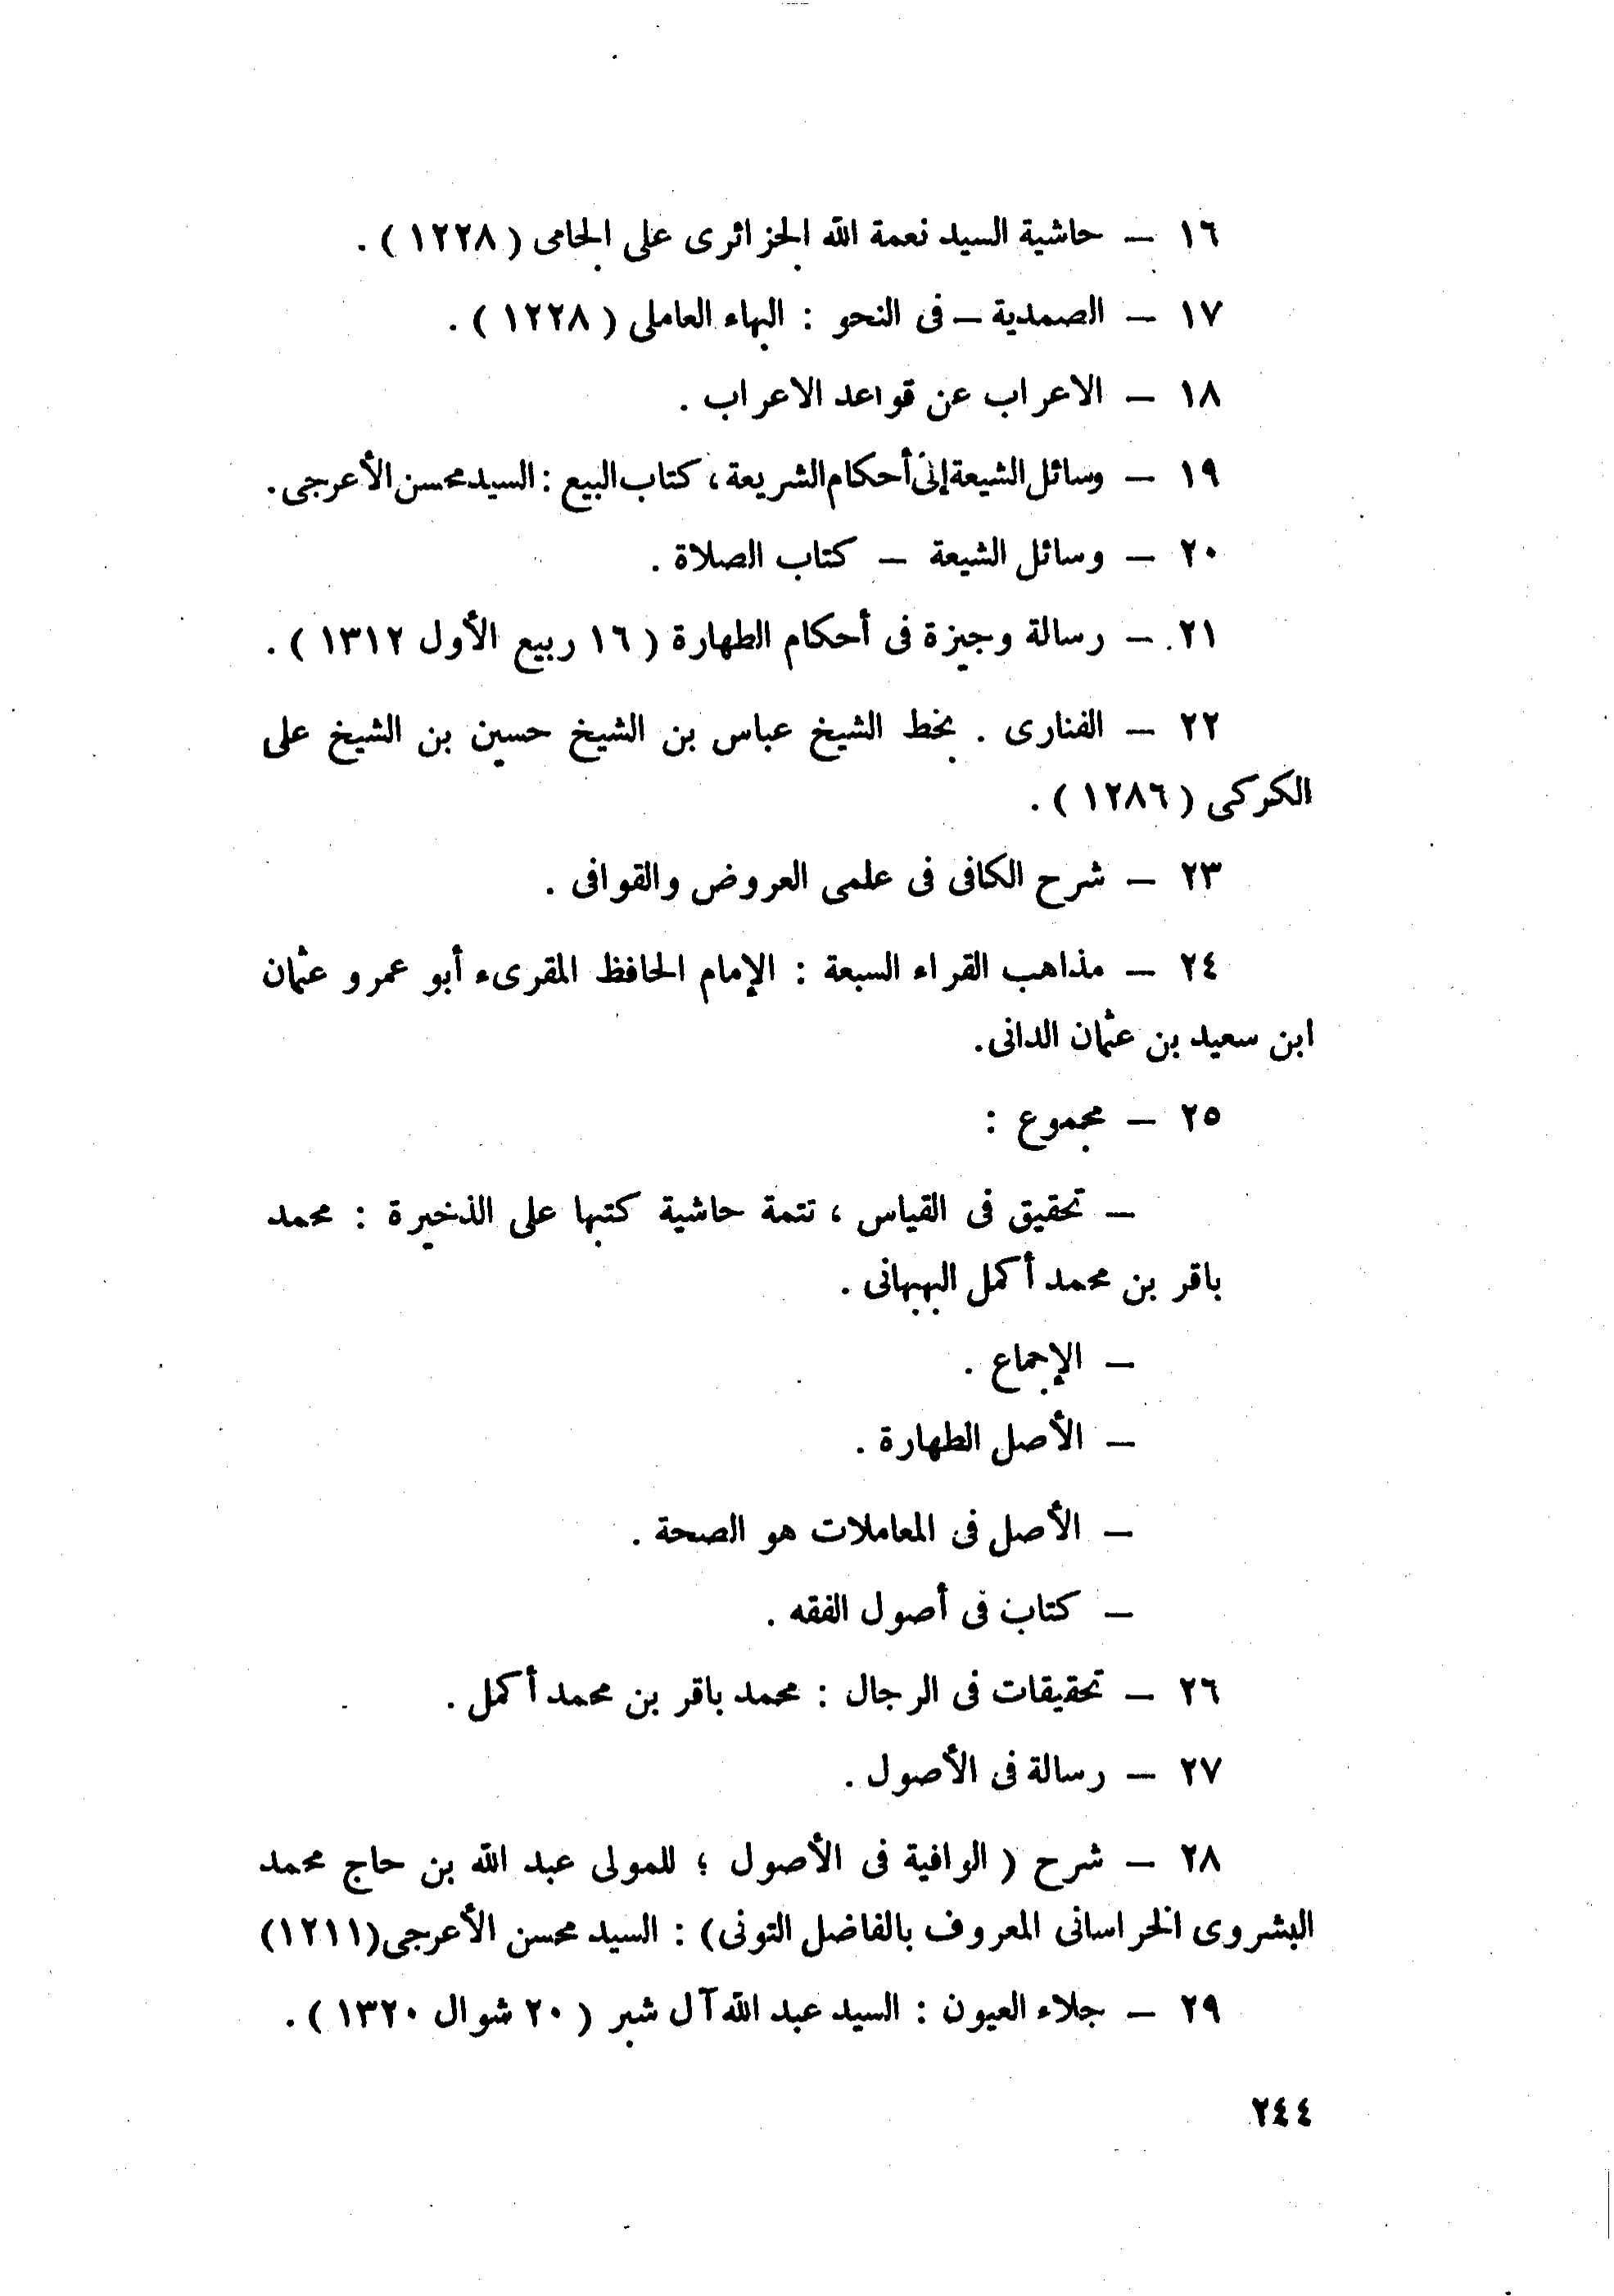 ١٦ – حاشية السيد نعمة الله الجزائرى على الجامى ( ١٢٢٨ ) .
١٧ – الصمدية – فى النحو : البهاء العاملى ( ١٢٢٨ ) .
١٨ – الاعراب عن قواعد الاعراب .
١٩ – وسائل الشيعة إلى أحكام الشريعة ، كتاب البيع : السيد محسن الأعرجى .
٢٠ – وسائل الشيعة – كتاب الصلاة .
٢١ – رسالة وجيزة فى أحكام الطهارة ( ١٦ ربيع الأول ١٣١٢ ) .
٢٢ – الفنارى . بخط الشيخ عباس بن الشيخ حسين بن الشيخ على
الكركى ( ١٢٨٦ ) .
٢٣ – شرح الكافى فى علمى العروض والقوافى .
٢٤ – مذاهب القراء السبعة : الإمام الحافظ المقرىء أبو عمرو عثمان
ابن سعيد بن عثمان الدانى .
٢٥ – مجموع :
– تحقيق فى القياس ، تتمة حاشية كتبها على الذخيرة : محمد
باقر بن محمد أكمل البهبهانى .
– الإجماع .
– الأصل الطهارة .
– الأصل فى المعاملات هو الصحة .
– كتاب فى أصول الفقه .
٢٦ – تحقيقات فى الرجال : محمد باقر بن محمد أكمل .
٢٧ – رسالة فى الأصول .
٢٨ – شرح ( الوافية فى الأصول ؛ للمولى عبد الله بن حاج محمد
البشروى الخراسانى المعروف بالفاضل التونى ) : السيد محسن الأعرجى ( ١٢١١ )
٢٩ – جلاء العيون : السيد عبد الله آل شبر ( ٢٠ شوال ١٣٢٠ ) .
٢٤٤